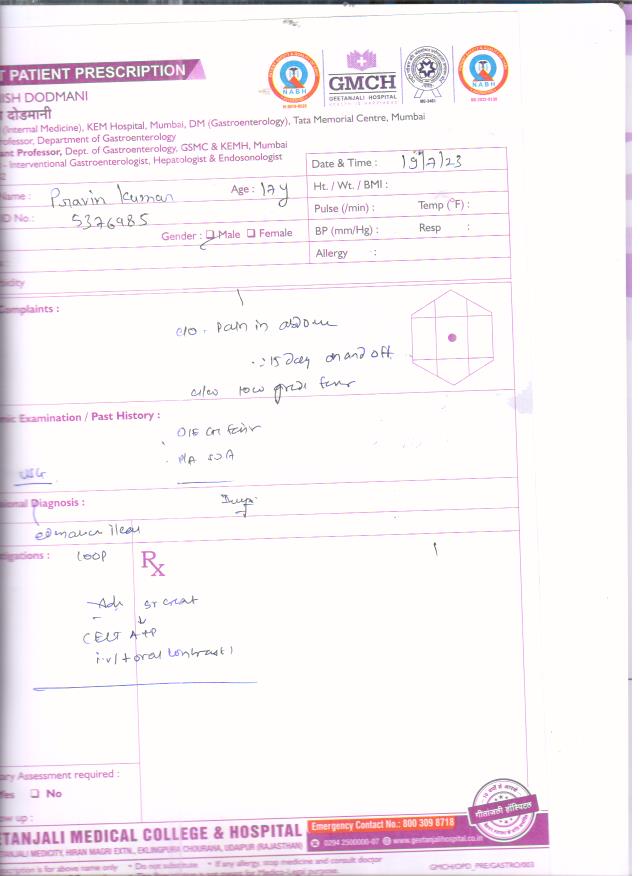 T PATIENT PRESCRIPTION
ISH DODMANI
दोडमानी
(Internal Medicine), KEM Hospital, Mumbai, DM (Gastroenterology), Tata Memorial Centre, Mumbai
ofessor, Department of Gastroenterology
ant Professor, Dept. of Gastroenterology, GSMC & KEMH, Mumbai
- Interventional Gastroenterologist, Hepatologist & Endosonologist
NABH
GMCH
GEETANJALI HOSPITAL
NABH
Name : Pravin Kumar Age : 17y
ID No : 5376985
Gender : Male Female
Date & Time : 19/7/23
Ht. / Wt. / BMI :
Pulse (/min) : Temp (°F) :
BP (mm/Hg) : Resp :
Allergy :
Complaints :
c/o . Pain in
15 day on and off
low grade
mic Examination / Past History :
O/E
P/A
USG
ional Diagnosis :
igations : LOOP
Rx
Adv Sr creat
CECT A+P
i.v/+oral contrast
ary Assessment required :
Yes No
ow up :
ETANJALI MEDICAL COLLEGE & HOSPITAL
TANJALI MEDICITY, HIRAN MAGRI EXTN., EKLINGPURA CHOURAHA, UDAIPUR (RAJASTHAN)
Emergency Contact No.: 800 309 8718
0294 2500000-07 www.geetanjalihospital.co.in
गीतांजली हॉस्पिटल
scription is for above name only * Do not substitute * If any allergy, stop medicine and consult doctor
GMCH/OPD_PRE/GASTRO/003